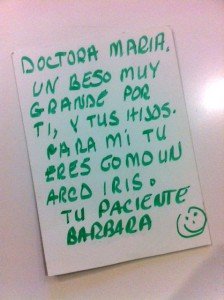 DOCTORA MARIA.
UN BESO MUY
GRANDE POR
TI, Y TUS HIJOS.
PARA MI TU
ERES COMO UN
ARCO IRIS.
TU PACIENTE
BARBARA